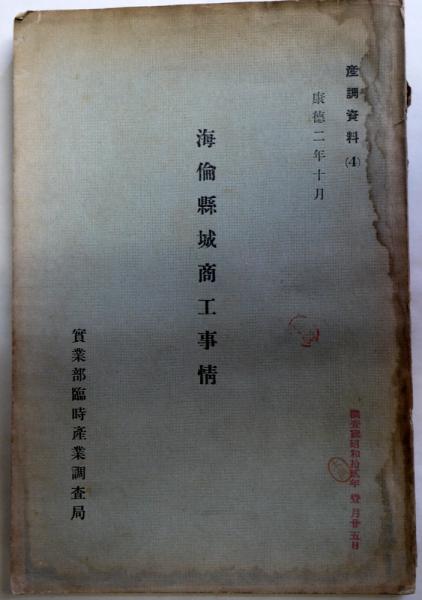 産調資料(4)
康德二年十月
海倫縣城商工事情
實業部臨時產業調査局
昭和拾貳年 壹月廿五日